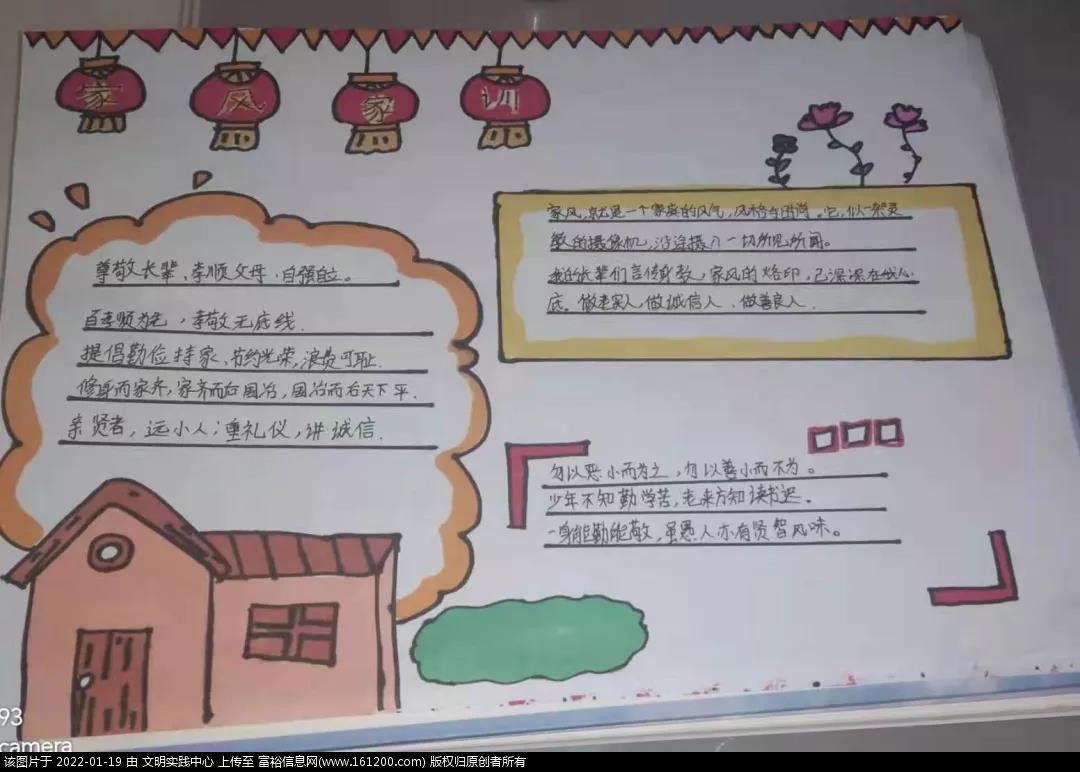 家风家训
尊敬长辈、孝顺父母、自强自立。
百孝顺为先，孝敬无底线.
提倡勤俭持家、节约光荣，浪费可耻.
修身而家齐，家齐而后国治，国治而后天下平.
亲贤者，远小人；重礼仪，讲诚信.
家风，就是一个家庭的风气，风格与时尚。它，似一架灵
敏的摄像机，沿途摄入一切所见所闻。
长辈们言传身教，家风的烙印，已深深在我心
底。做老实人，做诚信人，做善良人.
勿以恶小而为之，勿以善小而不为。
少年不知勤学苦，老来方知读书迟。
一身能勤能敬，虽愚人亦有贤智风味。
93
camera
该图片于 2022-01-19 由 文明实践中心 上传至 富裕信息网(www.161200.com) 版权归原创者所有